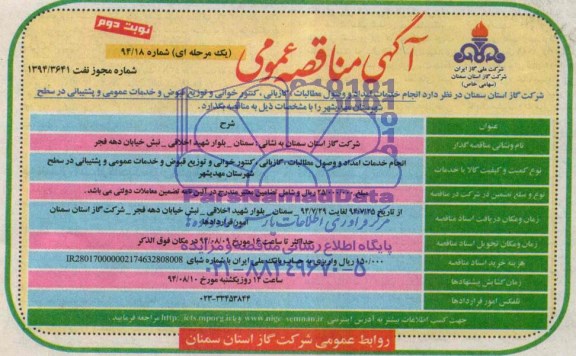 نوبت دوم
آگهی مناقصه عمومی
(یک مرحله ای) شماره ۹۴/۱۸
شماره مجوز نفت ۱۳۹۴/۳۶۴۱
شرکت ملی گاز ایران
شرکت گاز استان سمنان
(سهامی خاص)
شرکت گاز استان سمنان در نظر دارد انجام خدمات امداد و وصول مطالبات ، گازبانی ، کنتور خوانی و توزیع قبوض و خدمات عمومی و پشتیبانی در سطح
شهرستان مهدیشهر را با مشخصات ذیل به مناقصه بگذارد.
عنوان
شرح
نام ونشانی مناقصه گذار
شرکت گاز استان سمنان به نشانی : سمنان _ بلوار شهید اخلاقی _ نبش خیابان دهه فجر
نوع کمیت و کیفیت کالا یا خدمات
انجام خدمات امداد و وصول مطالبات ، گازبانی ، کنتور خوانی و توزیع قبوض و خدمات عمومی و پشتیبانی در سطح
شهرستان مهدیشهر
نوع و مبلغ تضمین شرکت در مناقصه
ریال وشامل تضامین معتبر مندرج در آئین نامه تضمین معاملات دولتی می باشد.
زمان ومکان دریافت اسناد مناقصه
از تاریخ ۹۴/۷/۲۵ لغایت ۹۴/۷/۲۹ _ سمنان _ بلوار شهید اخلاقی _ نبش خیابان دهه فجر _ شرکت گاز استان سمنان
امور قراردادها
زمان ومکان تحویل اسناد مناقصه
حداکثر تا ساعت ۱۴ مورخ ۹۴/۰۸/۰۹ در مکان فوق الذکر
هزینه خرید اسناد مناقصه
۱۵۰/۰۰۰ ریال واریزی به حساب بانک ملی ایران با شماره شبای IR280170000002174632808008
زمان گشایش پیشنهادها
ساعت ۱۴ روز یکشنبه مورخ ۹۴/۰۸/۱۰
تلفکس امور قراردادها
۰۲۳-۳۳۴۵۳۸۴۴
جهت کسب اطلاعات بیشتر به آدرس اینترنتی www.nigc-semnan.ir و http://iets.mporg.ir مراجعه فرمایید .
روابط عمومی شرکت گاز استان سمنان
ParsNamadData
پایگاه اطلاع رسانی مناقصه و مزایده
۰۲۱-۸۸۳۴۹۶۷۰-۵